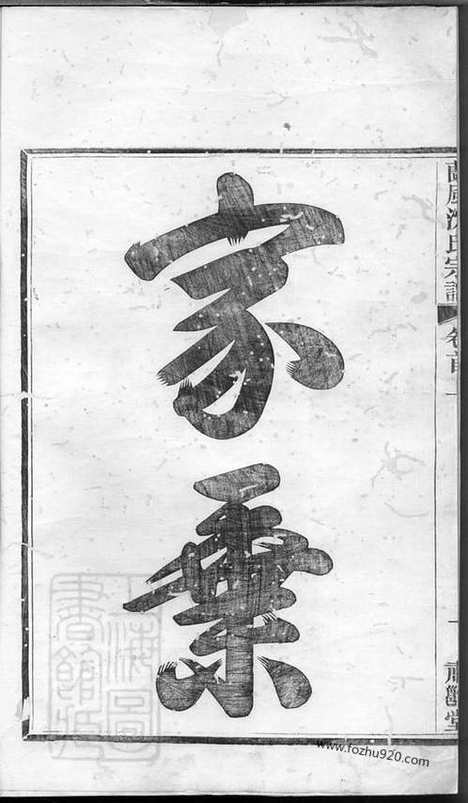 家乘
蘭風沈氏宗譜
卷首
一
肅雝堂
www.fozhu920.com